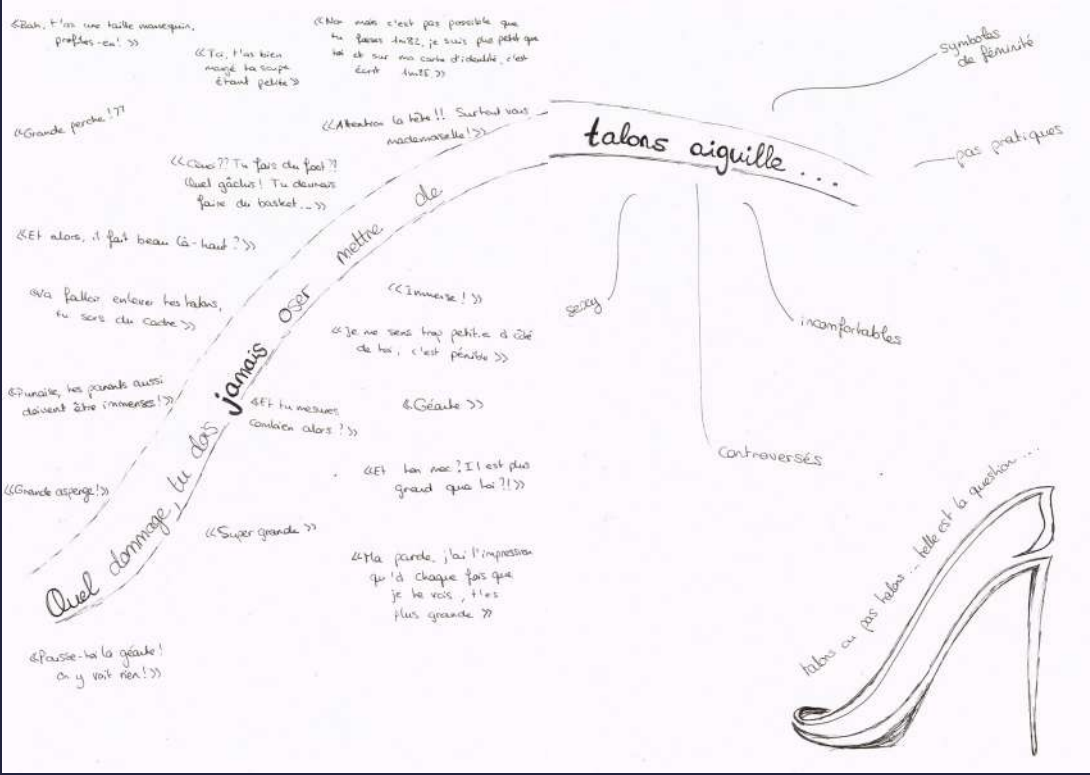 «Bah, t'as une taille mannequin,
profites-en! »
«Toi, t'as bien
mangé ta soupe
étant petite»
«Non mais c'est pas possible que
tu fasses 1m82, je suis plus petit que
toi et sur ma carte d'identité, c'est
écrit 1m85 »
«Grande perche!»
«Attention la tête!! Surtout vous
mademoiselle!»
«Quoi?? Tu fais du foot?!
Quel gâchis! Tu devrais
faire du basket...»
«Et alors, il fait beau là-haut?»
«Va falloir enlever tes talons,
tu sors du cadre»
«Punaise, tes parents aussi
doivent être immenses!»
«Grande asperge!»
Quel dommage, tu dois jamais oser mettre de
talons aiguille...
«Immense! »
«Je me sens trop petit.e à côté
de toi, c'est pénible»
«Et tu mesures
combien alors?»
«Géante »
«Et ton mec? Il est plus
grand que toi?!»
«Super grande »
«Ma parole, j'ai l'impression
qu'à chaque fois que
je te vois, t'es
plus grande »
«Pousse-toi la géante!
On y voit rien!»
symboles
de féminité
pas pratiques
sexy
incomfortables
controversés
talons ou pas talons... telle est la question...